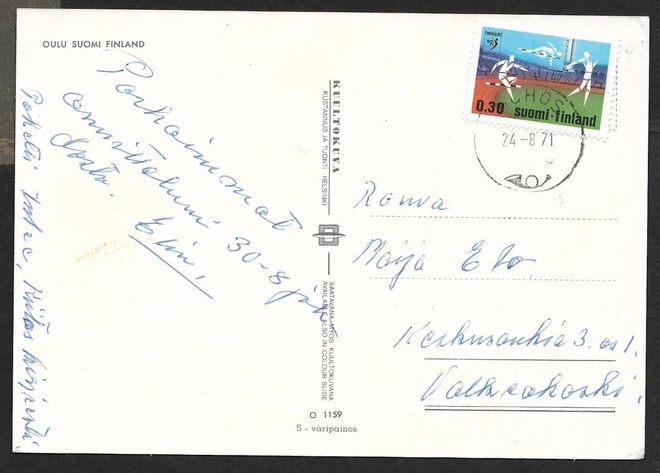 OULU SUOMI FINLAND
Parhaimmat
onnittelumi 30-8 
Elvi.
Kiitos
KUULTOKUVA
KUSTANNUS JA TUONTI HELSINKI
SAATAVANA MYÖS KUULTOKUVANA
AVAILABLE ALSO IN COLOUR SLIDE
O 1159
5 - väripainos
helsinki
0,30 suomi-finland
24-8 71
Rouva
Maija Elo
Keskuskatu 3. as 1.
Valkeakoski.